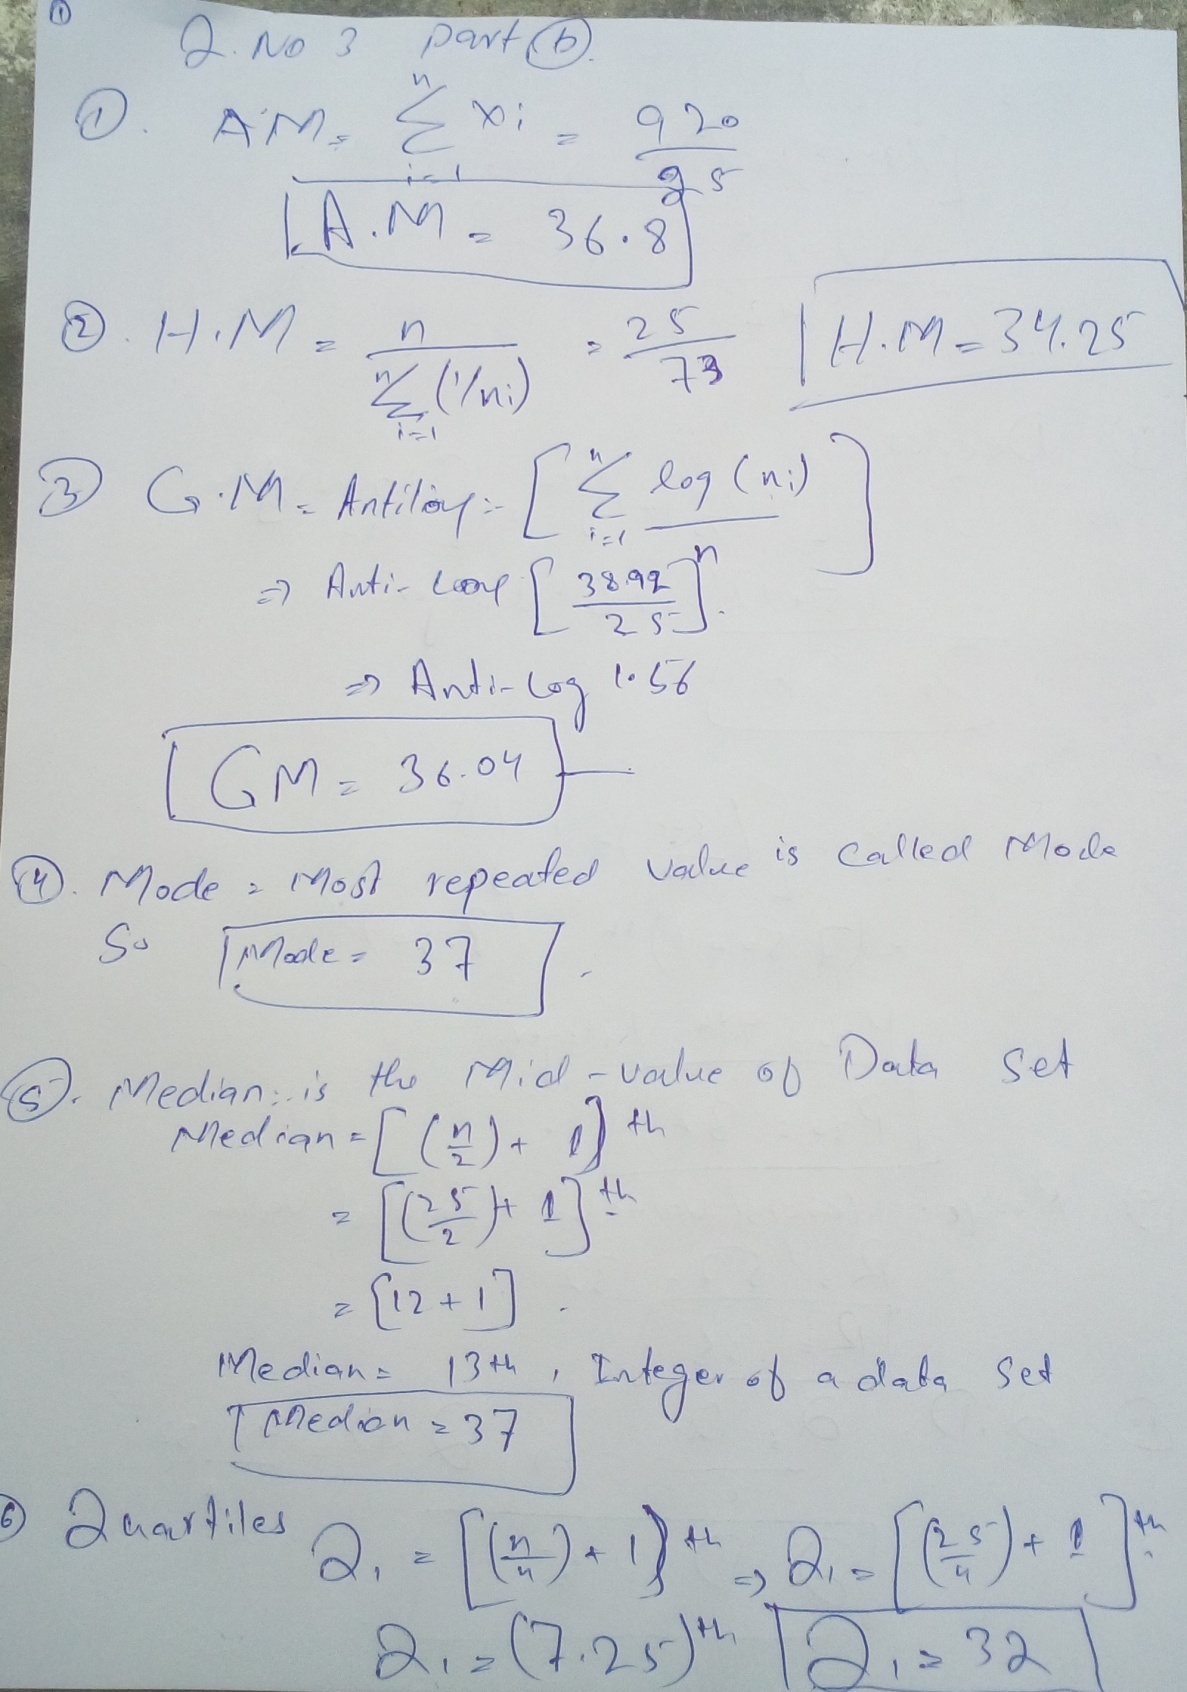 ①
Q. No 3 part ⓑ.
①. A.M = n∑i=1 xi = 920/25
A.M = 36.8
②. H.M = n / n∑i=1 (1/ni) = 25/73 H.M = 34.25
③ G.M = Antilog = [ n∑i=1 log (ni) / n ]
⇒ Anti-Log [ 38.92 / 25 ].
⇒ Anti-Log 1.56
GM = 36.04
④. Mode = Most repeated value is called Mode
So Mode = 37
⑤. Median: is the Mid-value of Data Set
Median = [ (n/2) + 1 ] th
= [ (25/2) + 1 ] th
= [12 + 1]
Median = 13th, Integer of a data set
Median = 37
⑥ Quartiles Q1 = [ (n/4) + 1 ] th ⇒ Q1 = [ (25/4) + 1 ] th
Q1 = (7.25)th Q1 = 32